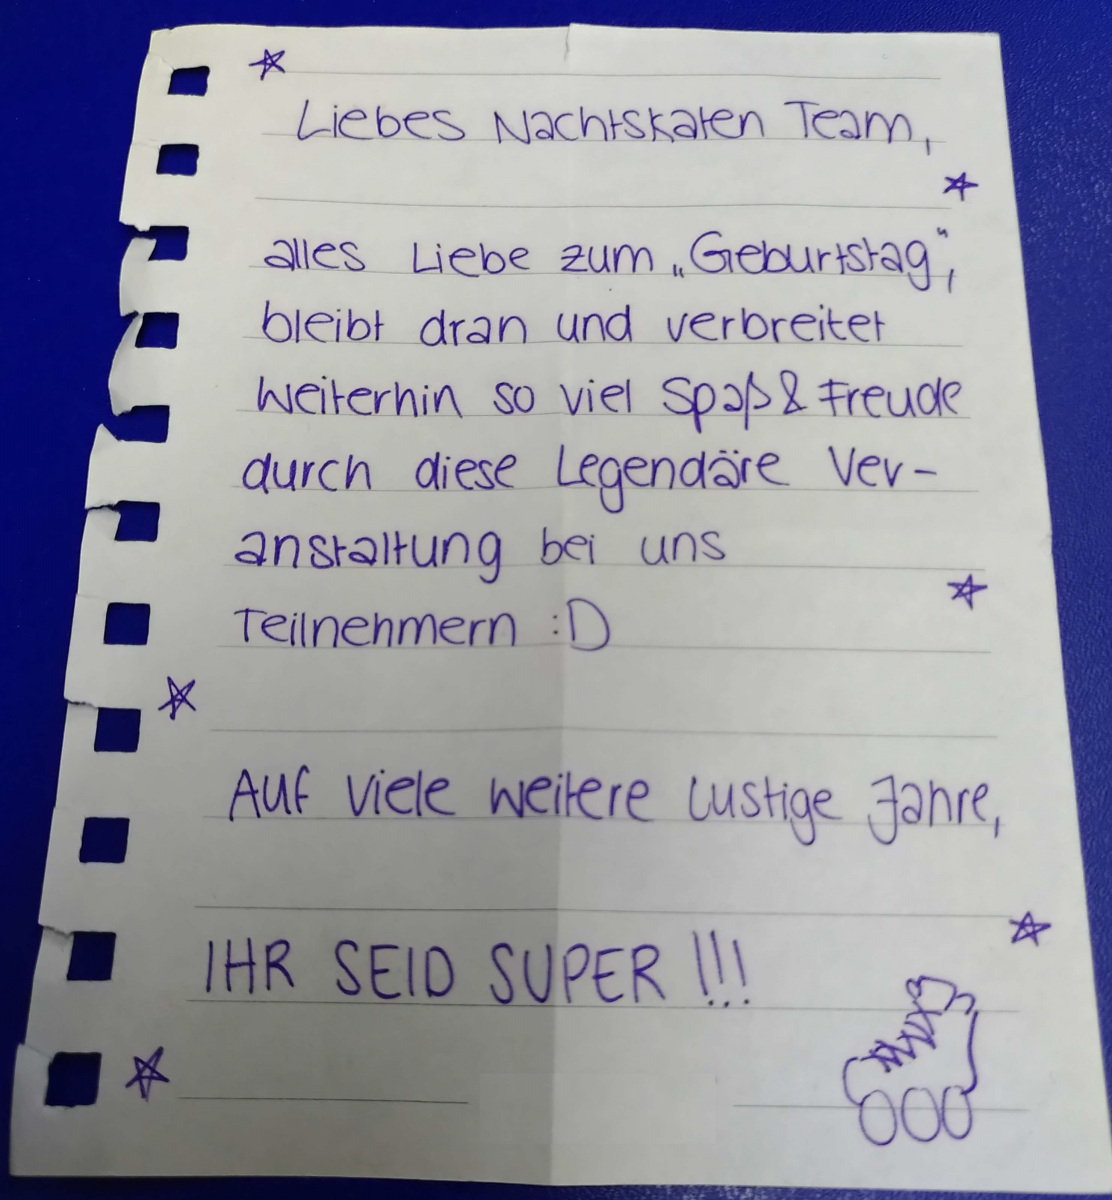 Liebes Nachtskaten Team,
alles Liebe zum „Geburtstag“,
bleibt dran und verbreitet
weiterhin so viel Spaß & Freude
durch diese Legendäre Ver-
anstaltung bei uns
Teilnehmern :D
Auf viele weitere lustige Jahre,
IHR SEID SUPER !!!